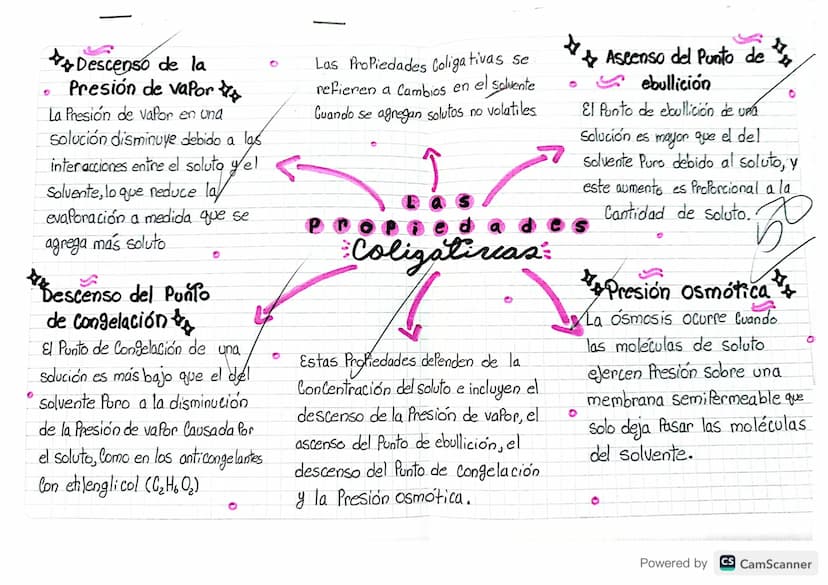 Descenso de la
Presión de vapor
La Presión de vapor en una
solución disminuye debido a las
interacciones entre el soluto y el
solvente, lo que reduce la
evaporación a medida que se
agrega más soluto
Las Propiedades Coligativas se
refieren a cambios en el solvente
Cuando se agregan solutos no volatiles
Ascenso del Punto de
ebullición
El Punto de ebullición de una
solución es mayor que el del
solvente Puro debido al soluto, y
este aumento es Proporcional a la
Cantidad de soluto.
50
Las
Propiedades
Coligativas
Descenso del Punto
de congelación
El Punto de Congelación de una
solución es más bajo que el del
solvente Puro a la disminución
de la Presión de vapor Causada Por
el soluto, Como en los anticongelantes
Con etilenglicol (C₂H₆O₂)
Estas Propiedades dependen de la
Concentración del soluto e incluyen el
descenso de la Presión de vapor, el
ascenso del Punto de ebullición, el
descenso del Punto de congelación
y la Presión osmótica.
Presión Osmótica
La ósmosis ocurre Cuando
las moléculas de soluto
ejercen Presión sobre una
membrana semiPermeable que
solo deja Pasar las moléculas
del solvente.
Powered by CS CamScanner